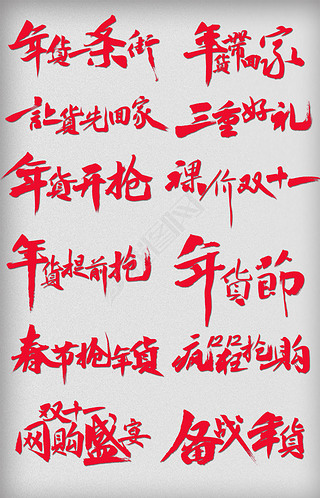 年货一条街
年货带回家
让货先回家
三重好礼
年货开抢
裸价双十一
年货提前抢
年货節
春节抢年貨
疯狂抢购
双十一
网购盛宴
备战年貨